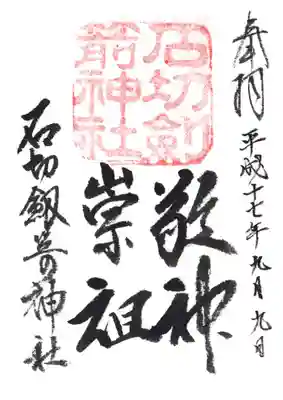 奉拝 平成十七年九月九日
石切劔
箭神社
敬神
崇祖
石切劔箭神社